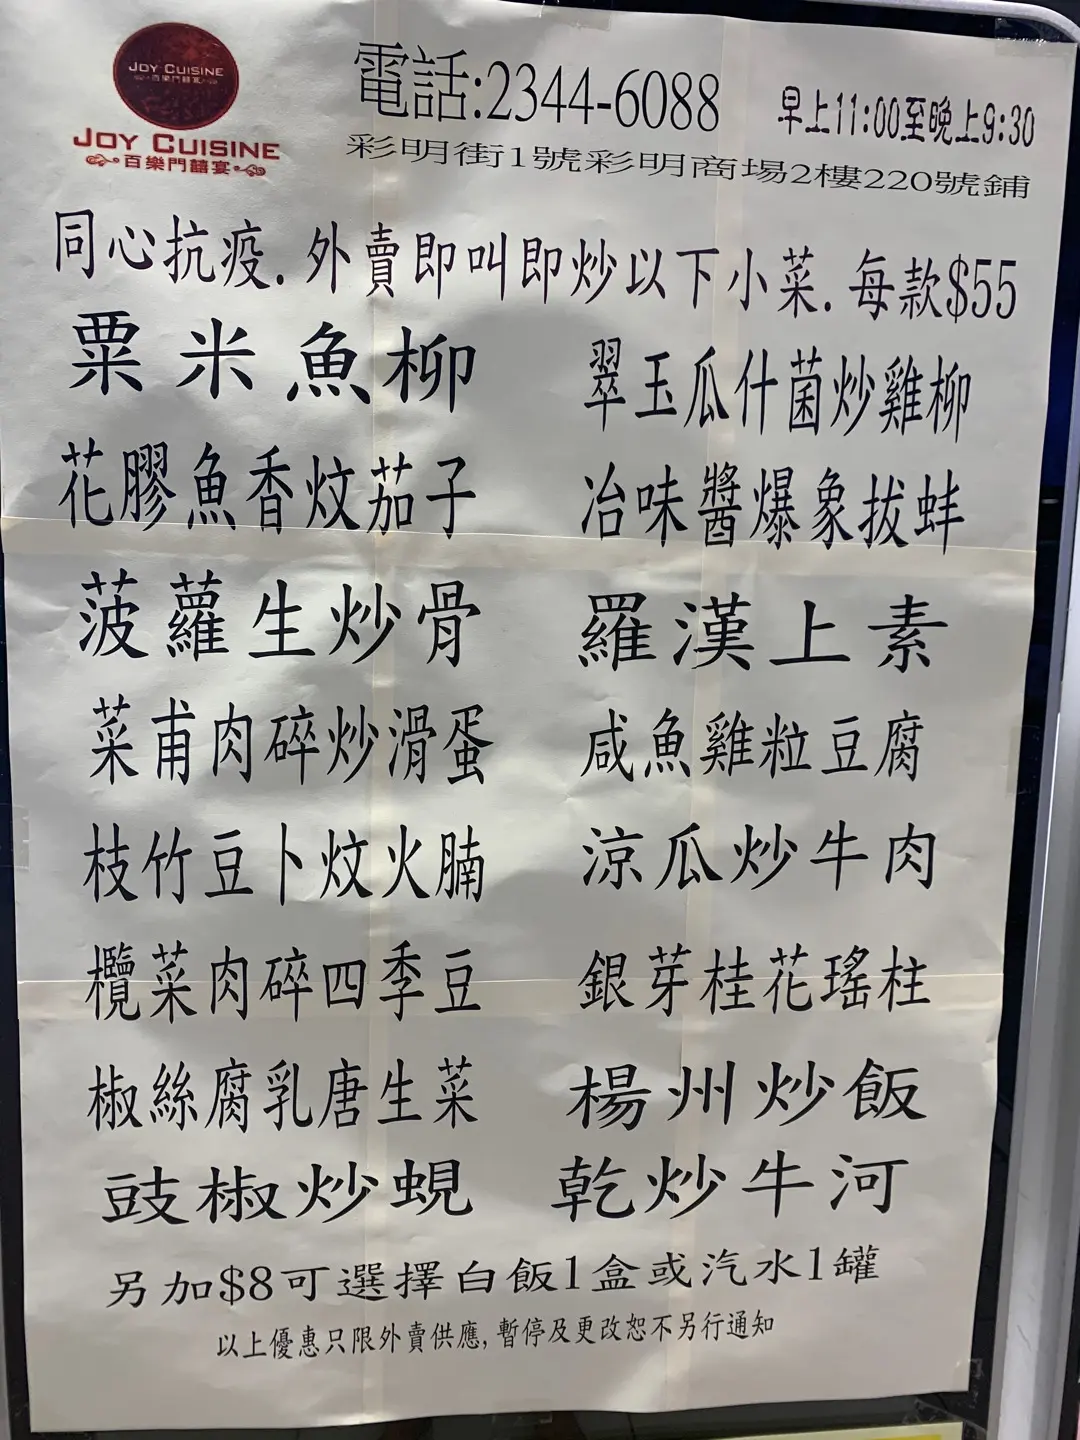 JOY CUISINE
百樂門囍宴
JOY CUISINE
百樂門囍宴
電話:2344-6088
早上11:00至晚上9:30
彩明街1號彩明商場2樓220號鋪
同心抗疫.外賣即叫即炒以下小菜.每款$55
粟米魚柳
翠玉瓜什菌炒雞柳
花膠魚香炆茄子
冶味醬爆象拔蚌
菠蘿生炒骨
羅漢上素
菜甫肉碎炒滑蛋
咸魚雞粒豆腐
枝竹豆卜炆火腩
涼瓜炒牛肉
欖菜肉碎四季豆
銀芽桂花瑤柱
椒絲腐乳唐生菜
楊州炒飯
豉椒炒蜆
乾炒牛河
另加$8可選擇白飯1盒或汽水1罐
以上優惠只限外賣供應,暫停及更改恕不另行通知